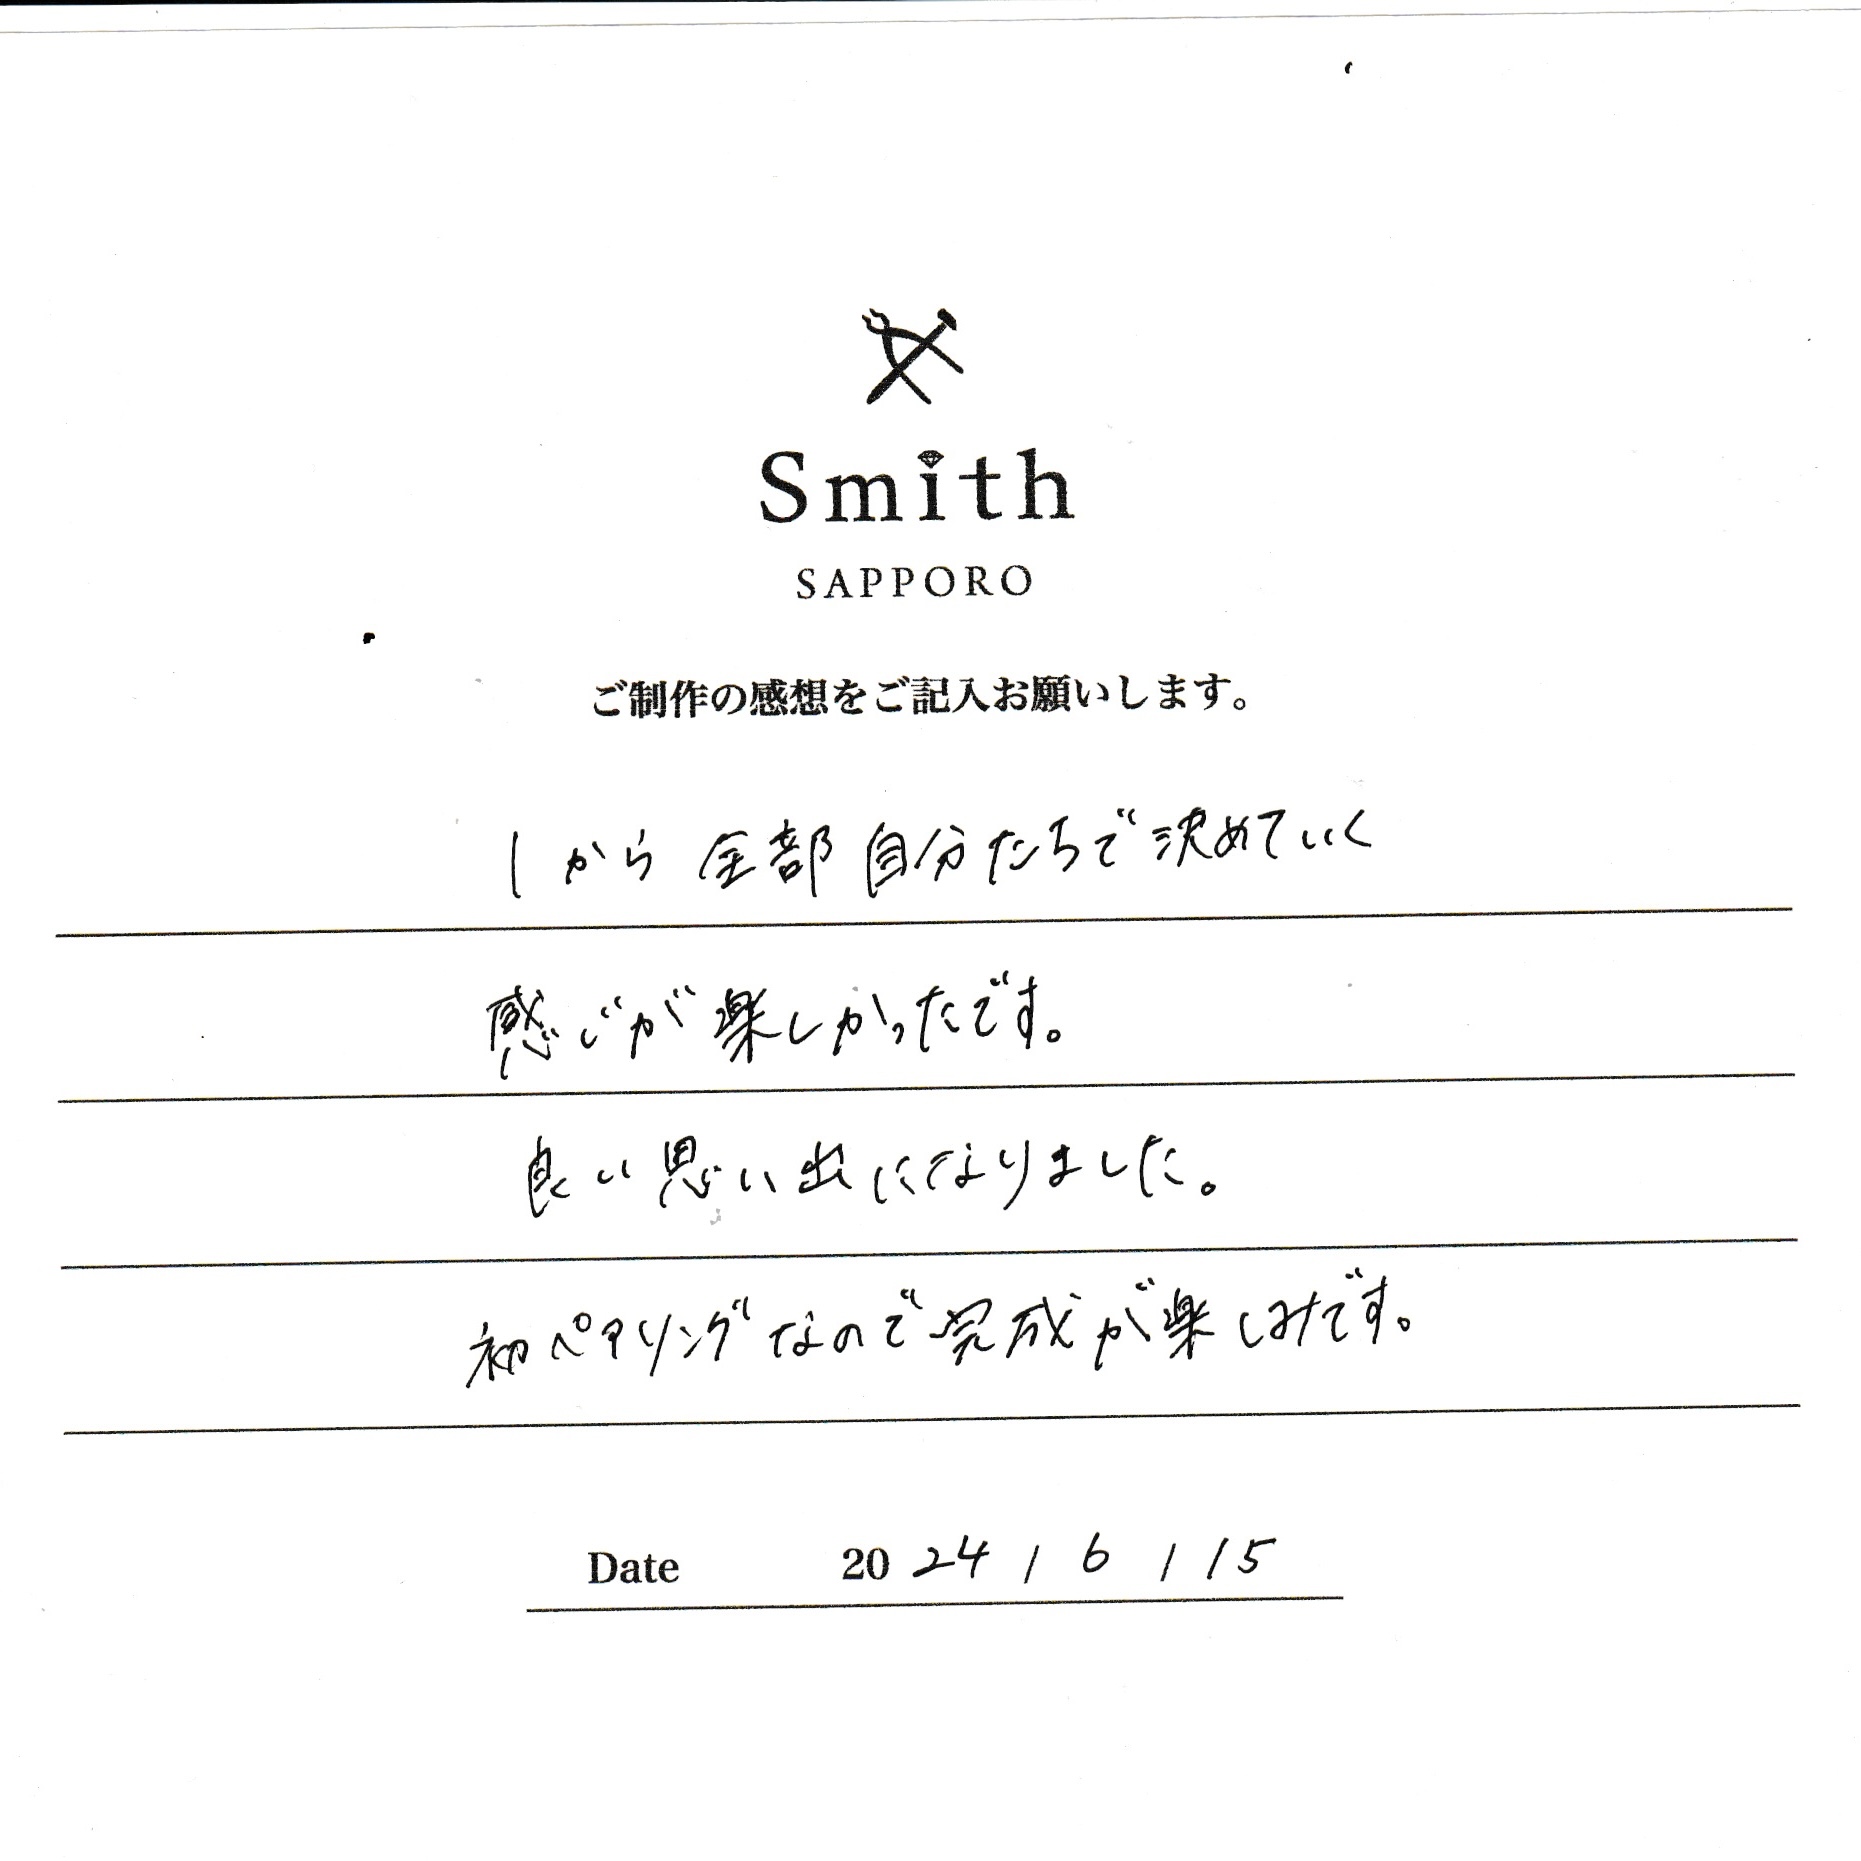 Smith
SAPPORO
ご制作の感想をご記入お願いします。
1から全部自分たちで決めていく
感じが楽しかったです。
良い思い出になりました。
初ペアリングなので完成が楽しみです。
Date 2024 / 6 / 15